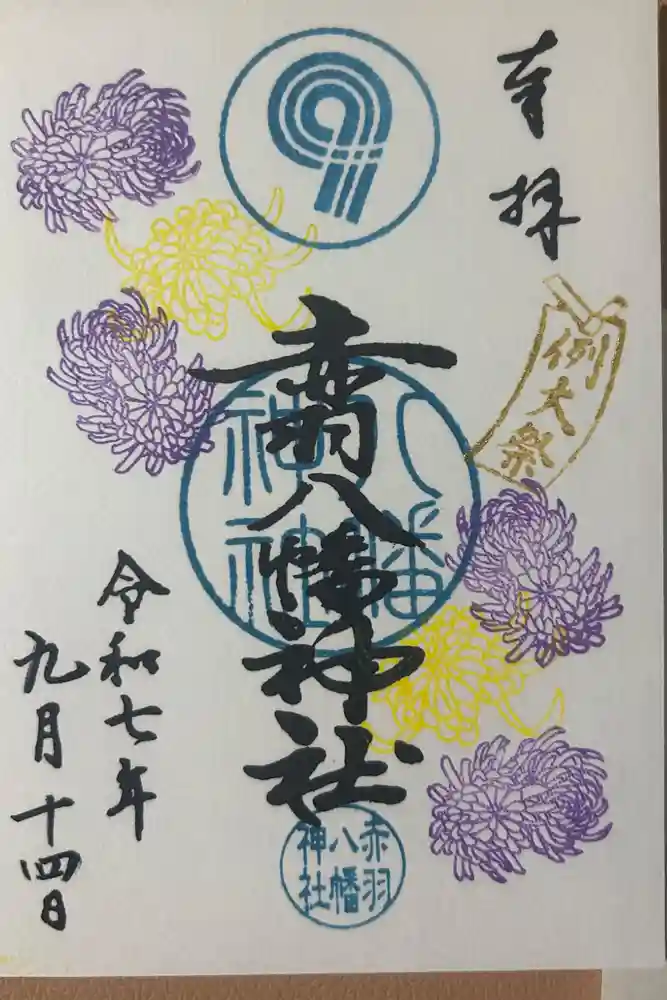 奉拝
例大祭
赤羽八幡神社
令和七年
九月十四日
赤羽
八幡
神社